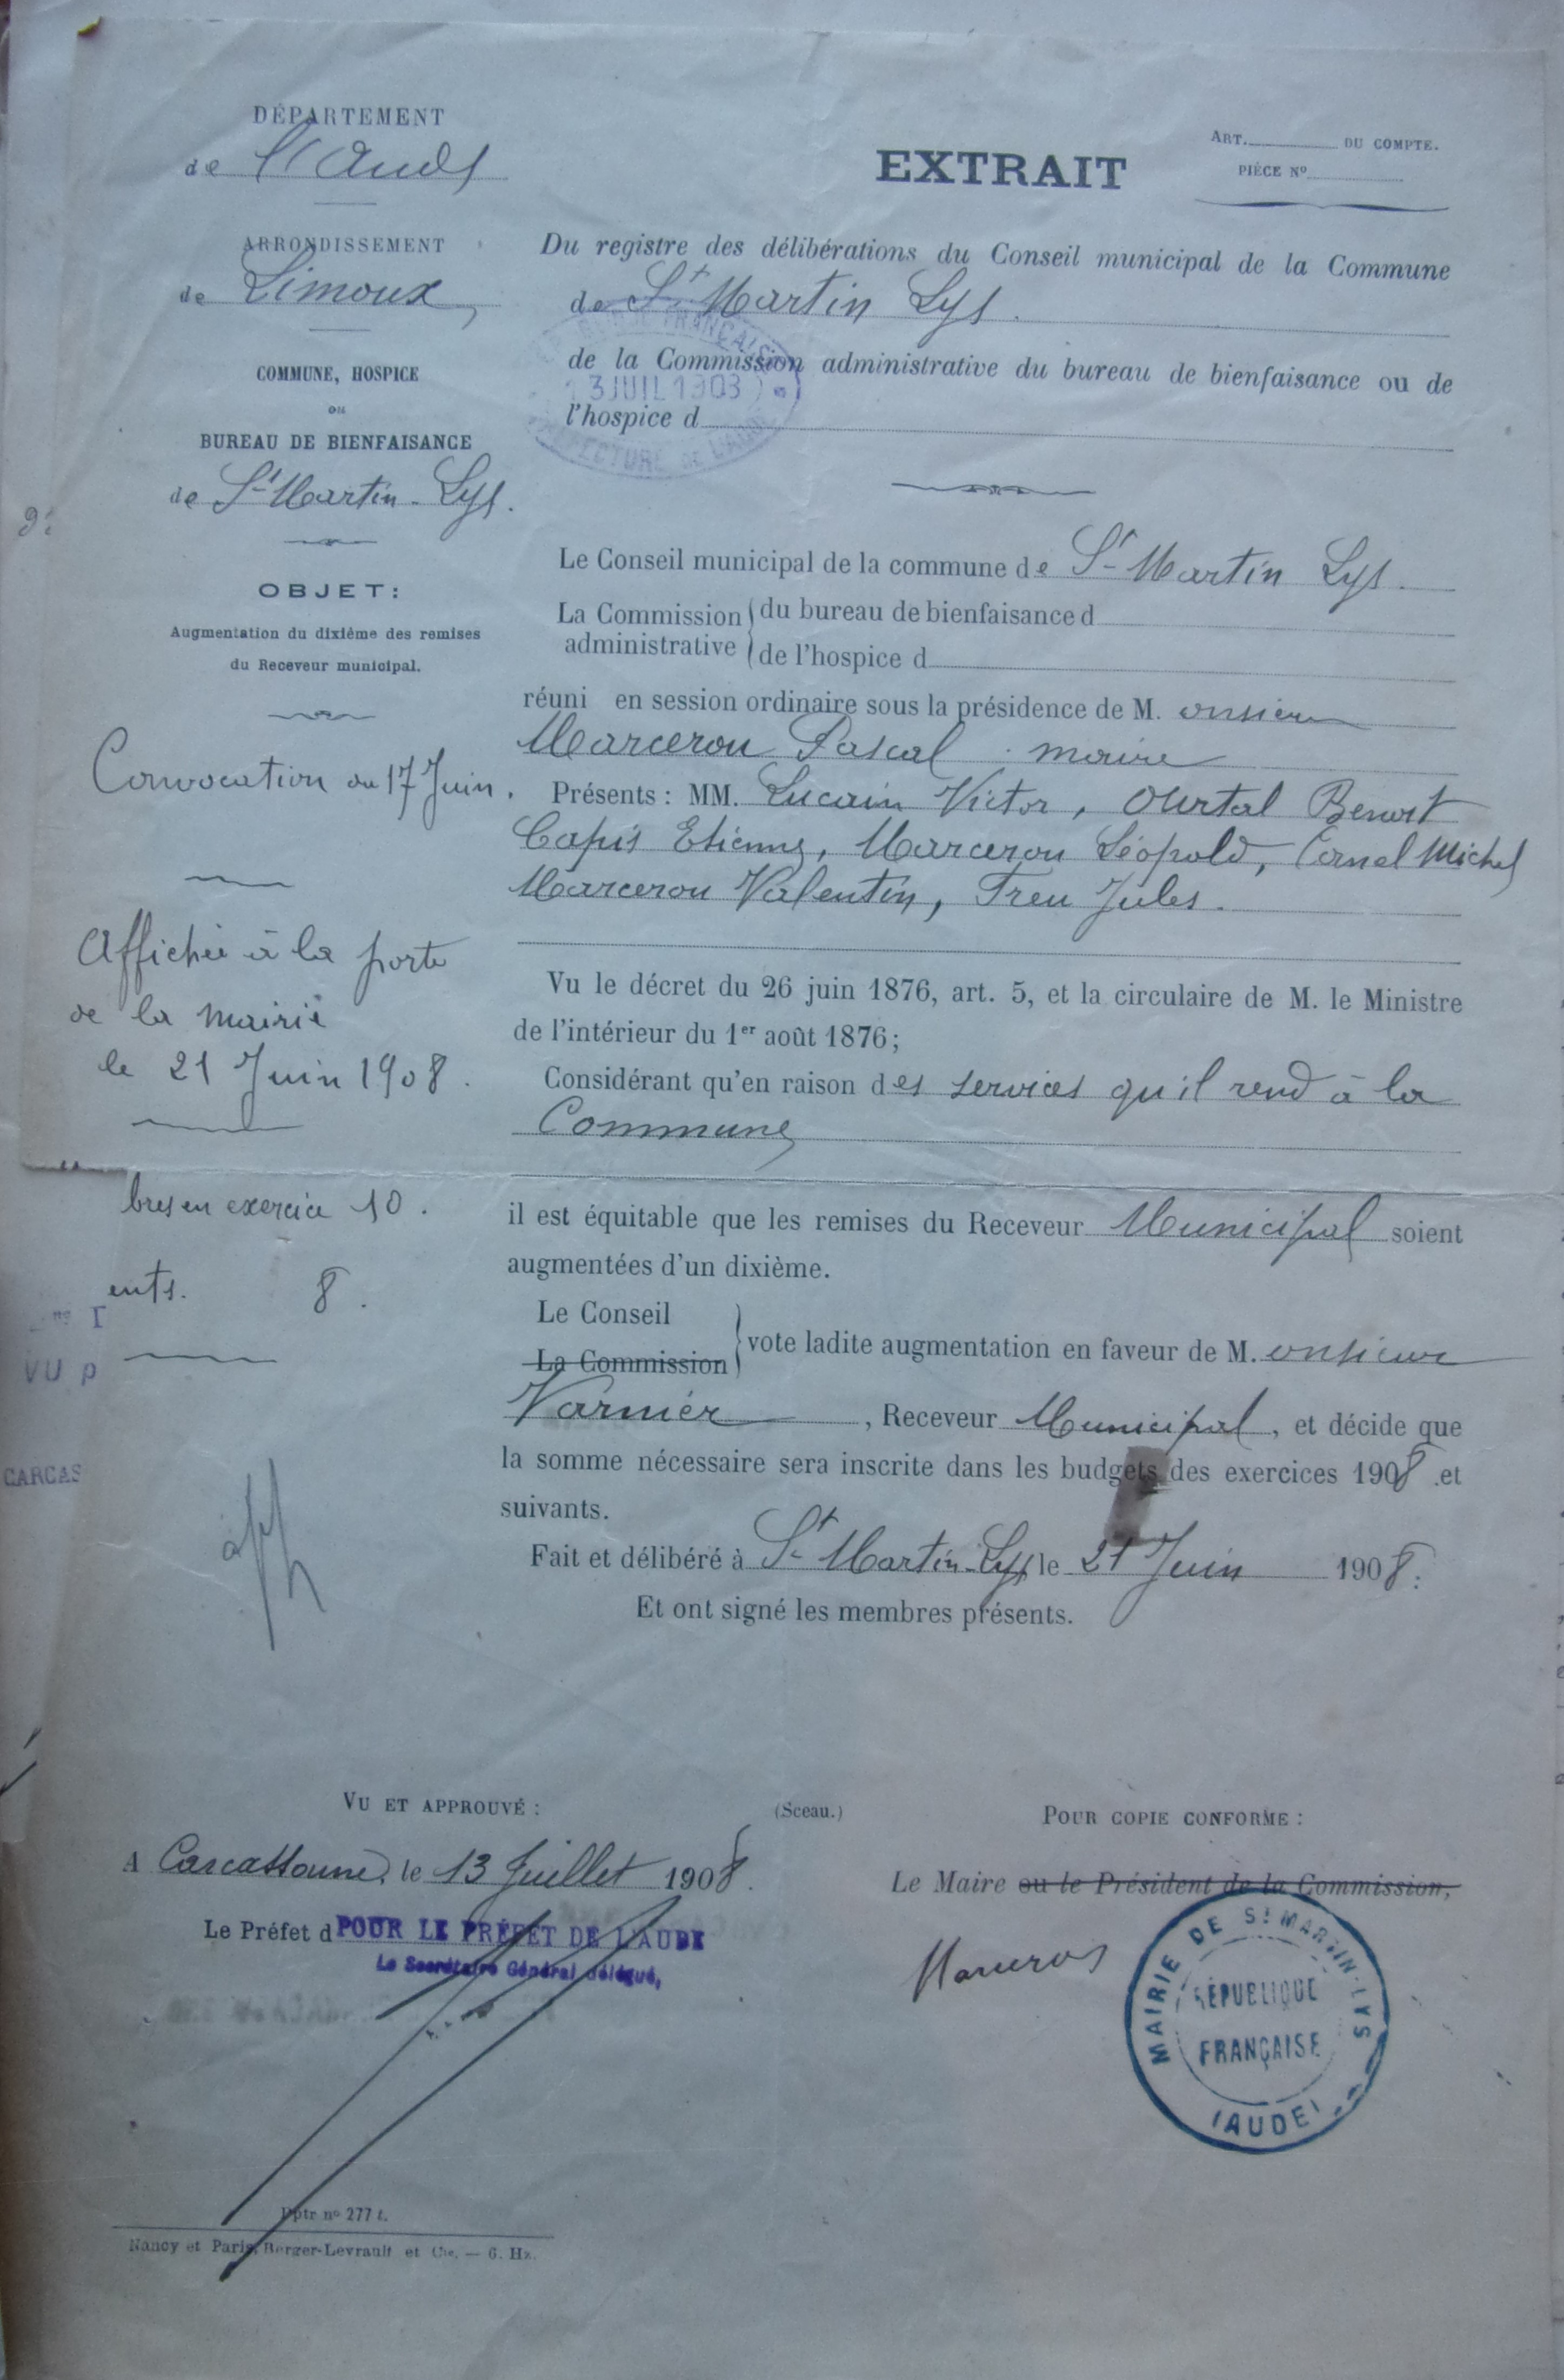 DÉPARTEMENT
de l'Aude
ARRONDISSEMENT
de Limoux,
COMMUNE, HOSPICE
ou
BUREAU DE BIENFAISANCE
de St Martin-Lys.
OBJET:
Augmentation du dixième des remises
du Receveur municipal.
Convocation du 17 Juin.
Affichée à la porte
de la mairie
le 21 Juin 1908.
bres en exercice 10.
ents. 8.
VU P
CARCAS
ART. DU COMPTE.
PIÈCE No
EXTRAIT
Du registre des délibérations du Conseil municipal de la Commune
de St Martin Lys.
de la Commission administrative du bureau de bienfaisance ou de
l'hospice d
FRANÇAISE
3 JUIL 1908
PRÉFECTURE DE L'AUDE
Le Conseil municipal de la commune de St Martin Lys.
La Commission administrative
du bureau de bienfaisance d
de l'hospice d
réuni en session ordinaire sous la présidence de M. onsieur
Marcerou Pascal maire
Présents: MM. Lucain Victor, Ourtal Benoit
Capis Etienne, Marcerou Léopold, Cornel Michel
Marcerou Valentin, Treu Jules.
Vu le décret du 26 juin 1876, art. 5, et la circulaire de M. le Ministre
de l'intérieur du 1er août 1876;
Considérant qu'en raison des services qu'il rend à la
Commune
il est équitable que les remises du Receveur Municipal soient
augmentées d'un dixième.
Le Conseil
La Commission
vote ladite augmentation en faveur de M. onsieur
Varnier, Receveur Municipal, et décide que
la somme nécessaire sera inscrite dans les budgets des exercices 1908 et
suivants.
Fait et délibéré à St Martin-Lys le 21 Juin 1908.
Et ont signé les membres présents.
VU ET APPROUVÉ:
A Carcassonne, le 13 Juillet 1908.
Le Préfet d POUR LE PRÉFET DE L'AUDE
Le Secrétaire Général délégué,
(Sceau.)
POUR COPIE CONFORME:
Le Maire ou le Président de la Commission,
Marcerou
MAIRIE DE St MARTIN-LYS
RÉPUBLIQUE
FRANÇAISE
(AUDE)
Dptr no 277 t.
Nancy et Paris, Berger-Levrault et Cie. — 6. Hz.